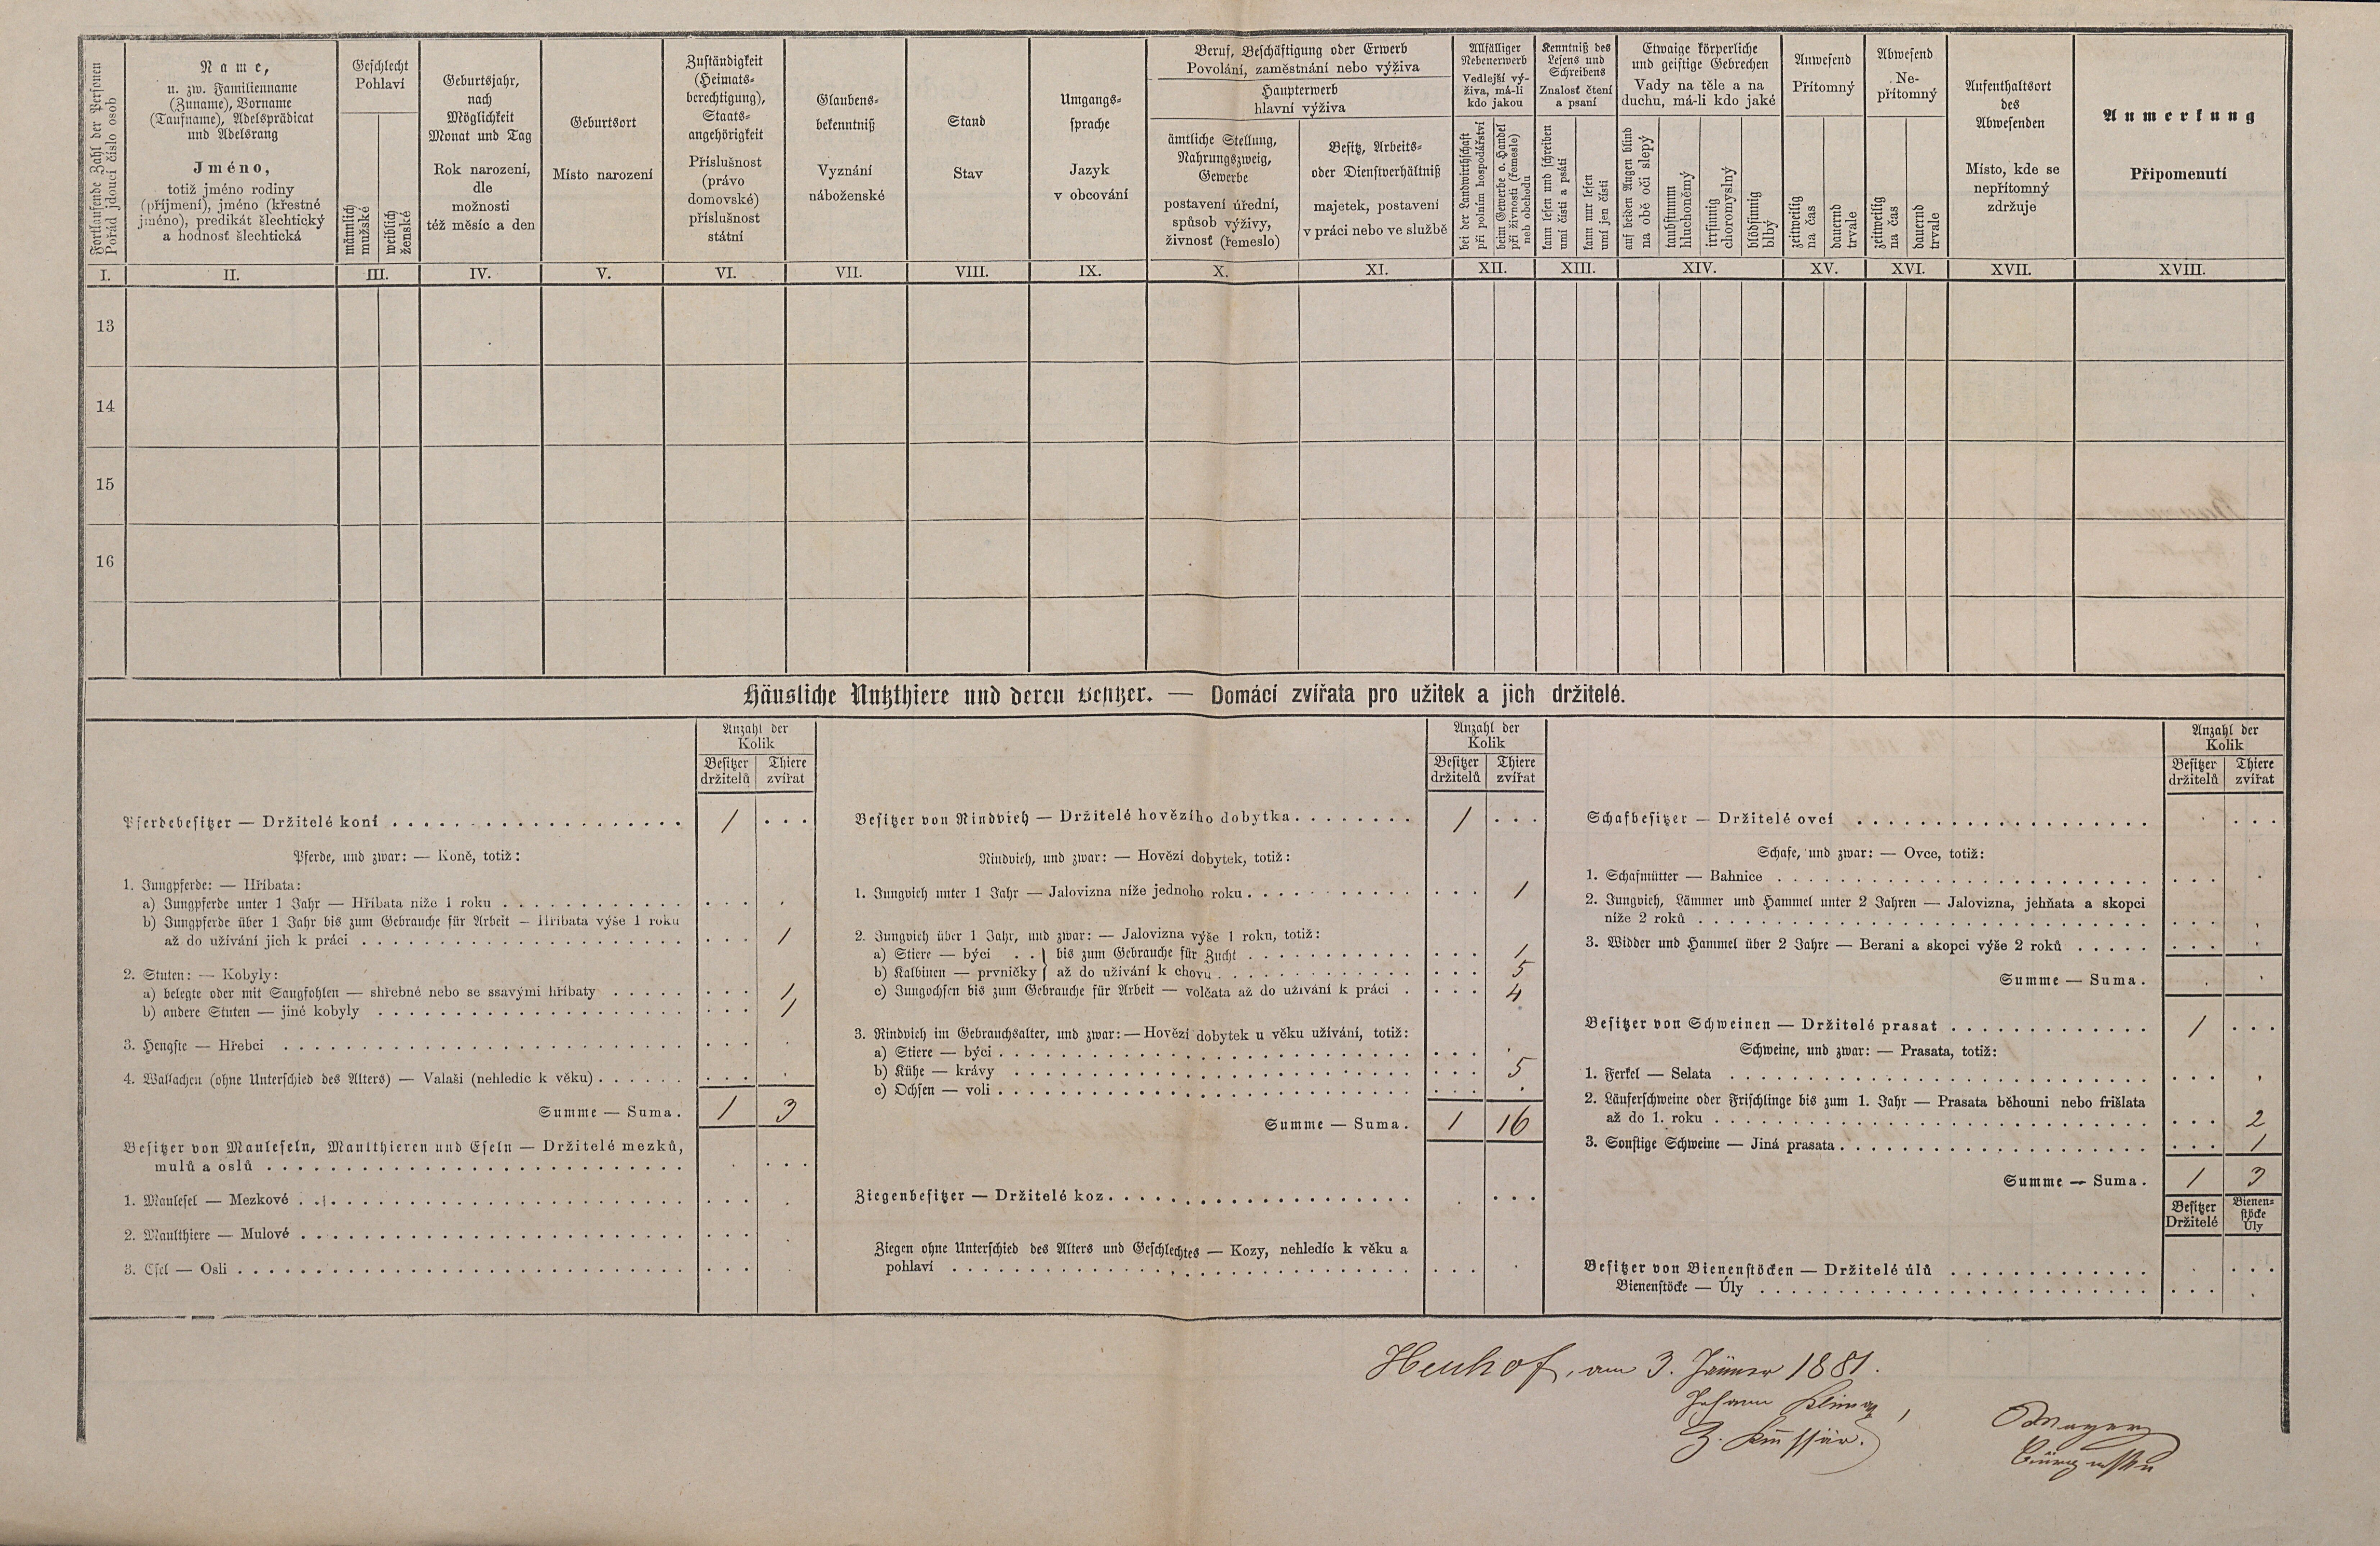 Fortlaufende Zahl der Personen
Pořád jdoucí číslo osob
Name,
u. zw. Familienname
(Zuname), Vorname
(Taufname), Adelsprädicat
und Adelsrang
Jméno,
totiž jméno rodiny
(příjmení), jméno (křestné
jméno), predikát šlechtický
a hodnosť šlechtická
Geschlecht
Pohlaví
männlich
mužské
weiblich
ženské
Geburtsjahr,
nach
Möglichkeit
Monat und Tag
Rok narození,
dle
možnosti
též měsíc a den
Geburtsort
Místo narození
Zuständigkeit
(Heimats-
berechtigung),
Staats-
angehörigkeit
Příslušnost
(právo
domovské)
příslušnost
státní
Glaubens-
bekenntniß
Vyznání
náboženské
Stand
Stav
Umgangs-
sprache
Jazyk
v obcování
Beruf, Beschäftigung oder Erwerb
Povolání, zaměstnání nebo výživa
Haupterwerb
hlavní výživa
ämtliche Stellung,
Nahrungszweig,
Gewerbe
postavení úřední,
spůsob výživy,
živnosť (řemeslo)
Besitz, Arbeits-
oder Dienstverhältniß
majetek, postavení
v práci nebo ve službě
Allfälliger
Nebenerwerb
Vedlejší vý-
živa, má-li
kdo jakou
bei der Landwirthschaft
při polním hospodářství
beim Gewerbe o. Handel
při živnosti (řemesle)
neb obchodu
Kenntniß des
Lesens und
Schreibens
Znalosť čtení
a psaní
kann lesen und schreiben
umí čísti a psáti
kann nur lesen
umí jen čísti
Etwaige körperliche
und geistige Gebrechen
Vady na těle a na
duchu, má-li kdo jaké
auf beiden Augen blind
na obě oči slepý
taubstumm
hluchoněmý
irrsinnig
choromyslný
blödsinnig
blbý
Anwesend
Přítomný
zeitweilig
na čas
dauernd
trvale
Abwesend
Ne-
přítomný
zeitweilig
na čas
dauernd
trvale
Aufenthaltsort
des
Abwesenden
Místo, kde se
nepřítomný
zdržuje
Anmerkung
Připomenutí
I. II. III. IV. V. VI. VII. VIII. IX. X. XI. XII. XIII. XIV. XV. XVI. XVII. XVIII.
13
14
15
16
Häusliche Nutzthiere und deren Besitzer. — Domácí zvířata pro užitek a jich držitelé.
Anzahl der
Kolik
Besitzer Thiere
držitelů zvířat
Pferdebesitzer — Držitelé koní 1
Pferde, und zwar: — Koně, totiž:
1. Jungpferde: — Hříbata:
a) Jungpferde unter 1 Jahr — Hříbata níže 1 roku
b) Jungpferde über 1 Jahr bis zum Gebrauche für Arbeit — Hříbata výše 1 roku
až do užívání jich k práci 1
2. Stuten: — Kobyly:
a) belegte oder mit Saugfohlen — shřebné nebo se ssavými hříbaty 1
b) andere Stuten — jiné kobyly 1
3. Hengste — Hřebci
4. Wallachen (ohne Unterschied des Alters) — Valaši (nehledíc k věku)
Summe — Suma. 1 3
Besitzer von Mauleseln, Maulthieren und Eseln — Držitelé mezků,
mulů a oslů
1. Maulesel — Mezkové
2. Maulthiere — Mulové
3. Esel — Osli
Anzahl der
Kolik
Besitzer Thiere
držitelů zvířat
Besitzer von Rindvieh — Držitelé hovězího dobytka 1
Rindvieh, und zwar: — Hovězí dobytek, totiž:
1. Jungvieh unter 1 Jahr — Jalovizna níže jednoho roku 1
2. Jungvieh über 1 Jahr, und zwar: — Jalovizna výše 1 roku, totiž:
a) Stiere — býci } bis zum Gebrauche für Zucht 1
b) Kalbinen — prvničky } až do užívání k chovu 5
c) Jungochsen bis zum Gebrauche für Arbeit — volčata až do užívání k práci 4
3. Rindvieh im Gebrauchsalter, und zwar: — Hovězí dobytek u věku užívání, totiž:
a) Stiere — býci
b) Kühe — krávy 5
c) Ochsen — voli
Summe — Suma. 1 16
Ziegenbesitzer — Držitelé koz
Ziegen ohne Unterschied des Alters und Geschlechtes — Kozy, nehledíc k věku a
pohlaví
Anzahl der
Kolik
Besitzer Thiere
držitelů zvířat
Schafbesitzer — Držitelé ovcí
Schafe, und zwar: — Ovce, totiž:
1. Schafmütter — Bahnice
2. Jungvieh, Lämmer und Hammel unter 2 Jahren — Jalovizna, jehňata a skopci
níže 2 roků
3. Widder und Hammel über 2 Jahre — Berani a skopci výše 2 roků
Summe — Suma.
Besitzer von Schweinen — Držitelé prasat 1
Schweine, und zwar: — Prasata, totiž:
1. Ferkel — Selata
2. Läuferschweine oder Frischlinge bis zum 1. Jahr — Prasata běhouni nebo frišlata
až do 1. roku 2
3. Sonstige Schweine — Jiná prasata 1
Summe — Suma. 1 3
Besitzer Bienen-
stöcke
Držitelé Úly
Besitzer von Bienenstöcken — Držitelé úlů
Bienenstöcke — Úly
Heuhof, am 3. Jänner 1881.
Johann
Mayer